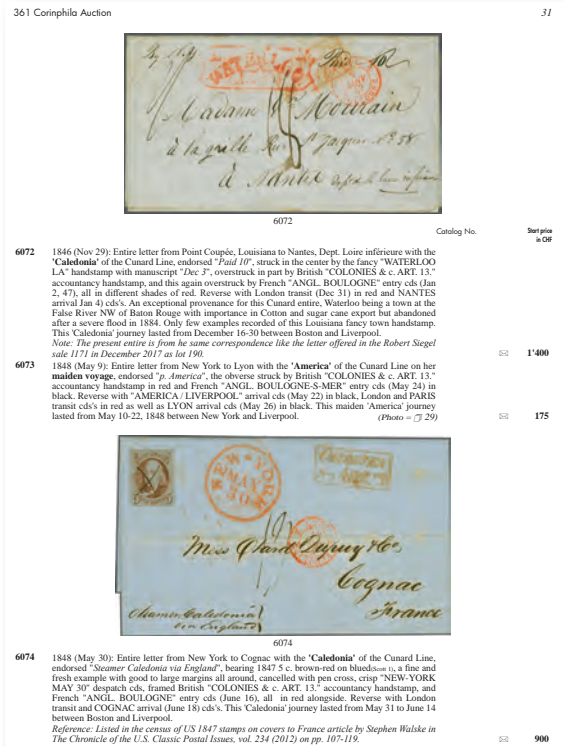 361 Corinphila Auction
31
WATERLOO
Paid 10
Madame
Mourain
à la grille Rue St Jaques No 58
à Nantes
6072
Catalog No.
Start price
in CHF
6072 1846 (Nov 29): Entire letter from Point Coupée, Louisiana to Nantes, Dept. Loire inférieure with the
'Caledonia' of the Cunard Line, endorsed "Paid 10", struck in the center by the fancy "WATERLOO
LA" handstamp with manuscript "Dec 3", overstruck in part by British "COLONIES & c. ART. 13."
accountancy handstamp, and this again overstruck by French "ANGL. BOULOGNE" entry cds (Jan
2, 47), all in different shades of red. Reverse with London transit (Dec 31) in red and NANTES
arrival Jan 4) cds's. An exceptional provenance for this Cunard entire, Waterloo being a town at the
False River NW of Baton Rouge with importance in Cotton and sugar cane export but abandoned
after a severe flood in 1884. Only few examples recorded of this Louisiana fancy town handstamp.
This 'Caledonia' journey lasted from December 16-30 between Boston and Liverpool.
Note: The present entire is from he same correspondence like the letter offered in the Robert Siegel
sale 1171 in December 2017 as lot 190. 1'400
6073 1848 (May 9): Entire letter from New York to Lyon with the 'America' of the Cunard Line on her
maiden voyage, endorsed "p. America", the obverse struck by British "COLONIES & c. ART. 13."
accountancy handstamp in red and French "ANGL. BOULOGNE-S-MER" entry cds (May 24) in
black. Reverse with "AMERICA / LIVERPOOL" arrival cds (May 22) in black, London and PARIS
transit cds's in red as well as LYON arrival cds (May 26) in black. This maiden 'America' journey
lasted from May 10-22, 1848 between New York and Liverpool. (Photo = 29) 175
NEW-YORK
MAY
30
Miss Otard Dupuy & Co
Cognac
France
Steamer Caledonia
via England
6074
6074 1848 (May 30): Entire letter from New York to Cognac with the 'Caledonia' of the Cunard Line,
endorsed "Steamer Caledonia via England", bearing 1847 5 c. brown-red on blued(Scott 1), a fine and
fresh example with good to large margins all around, cancelled with pen cross, crisp "NEW-YORK
MAY 30" despatch cds, framed British "COLONIES & c. ART. 13." accountancy handstamp, and
French "ANGL. BOULOGNE" entry cds (June 16), all in red alongside. Reverse with London
transit and COGNAC arrival (June 18) cds's. This 'Caledonia' journey lasted from May 31 to June 14
between Boston and Liverpool.
Reference: Listed in the census of US 1847 stamps on covers to France article by Stephen Walske in
The Chronicle of the U.S. Classic Postal Issues, vol. 234 (2012) on pp. 107-119. 900